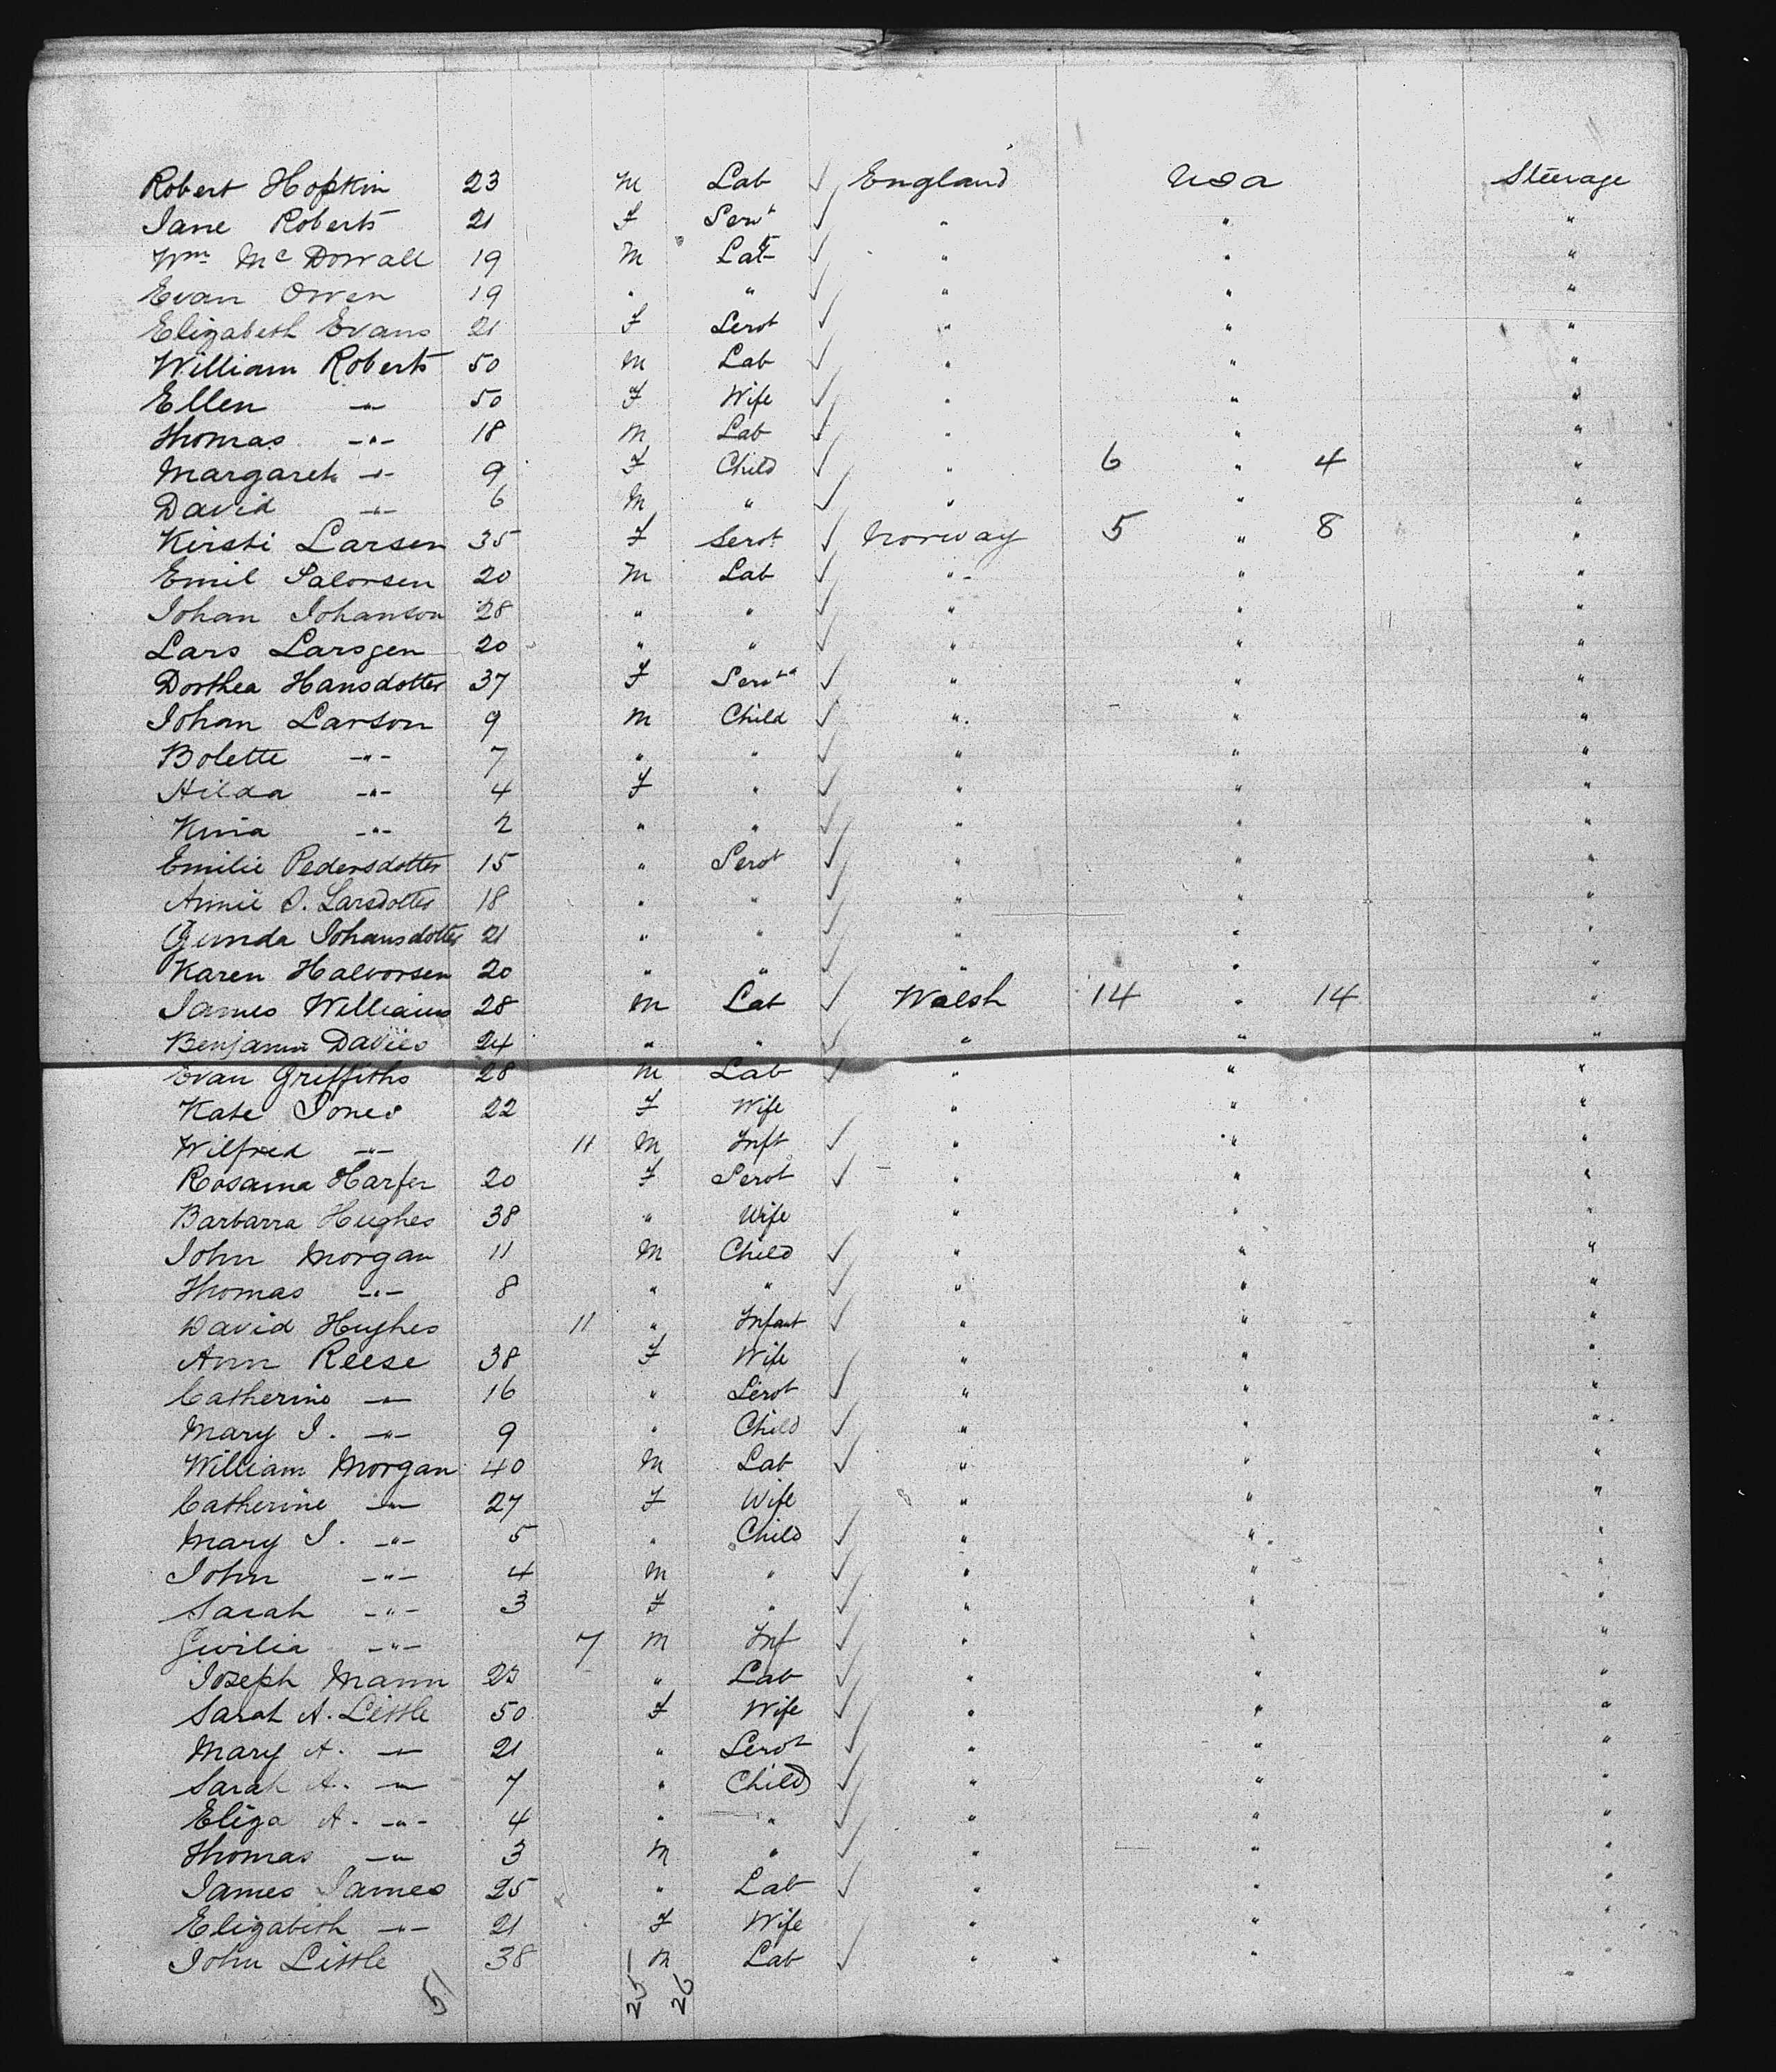 Robert Hopkin 23 M Lab ✓ England USA Steerage
Jane Roberts 21 F Servt ✓ " " "
Wm McDowall 19 M Lab ✓ " " "
Evan Owen 19 " " ✓ " " "
Elizabeth Evans 21 F Servt ✓ " " "
William Roberts 50 M Lab ✓ " " "
Ellen -"- 50 F Wife ✓ " " "
Thomas -"- 18 M Lab ✓ " " "
Margaret -"- 9 F Child ✓ " 6 " 4 "
David -"- 6 M " ✓ " " "
Kirsti Larsen 35 F Servt ✓ Norway 5 " 8 "
Emil Salorsen 20 M Lab ✓ " " "
Johan Johanson 28 " " ✓ " " "
Lars Larsgen 20 " " ✓ " " "
Dorthea Hansdotter 37 F Servt ✓ " " "
Johan Larson 9 M Child ✓ " " "
Bolette -"- 7 " " ✓ " " "
Hilda -"- 4 F " ✓ " " "
-"- 2 " " ✓ " " "
Emilie Pedersdotter 15 " Servt ✓ " " "
Annie S. Larsdotter 18 " " ✓ " " "
Gunda Johansdotter 21 " " ✓ " " "
Karen Halvorsen 20 " " ✓ " " "
James Williams 28 M Lab ✓ Walsh 14 " 14 "
Benjamin Davies 24 " " ✓ " " "
Evan Griffiths 28 M Lab ✓ " " "
Kate Jones 22 F Wife " " "
Wilfred -"- 11 M Inft ✓ " " "
Rosanna Harfer 20 F Servt ✓ " " "
Barbarra Hughes 38 " Wife " " "
John Morgan 11 M Child ✓ " " "
Thomas -"- 8 " " ✓ " " "
David Hughes 11 " Infant ✓ " " "
Ann Reese 38 F Wife " " "
Catherine -"- 16 " Servt ✓ " " "
Mary J. -"- 9 " Child ✓ " " "
William Morgan 40 M Lab ✓ " " "
Catherine -"- 27 F Wife " " "
Mary J. -"- 5 " Child ✓ " " "
John -"- 4 M " ✓ " " "
Sarah -"- 3 F " ✓ " " "
-"- 7 M Inf ✓ " " "
Joseph Mann 23 " Lab ✓ " " "
Sarah A. Little 50 F Wife ✓ " " "
Mary A. -"- 21 " Servt ✓ " " "
Sarah A. -"- 7 " Child ✓ " " "
Eliza A. -"- 4 " " ✓ " " "
Thomas -"- 3 M " ✓ " " "
James James 25 " Lab ✓ " " "
Elizabeth -"- 21 F Wife " " "
John Little 38 M Lab ✓ " " "
51 25 26